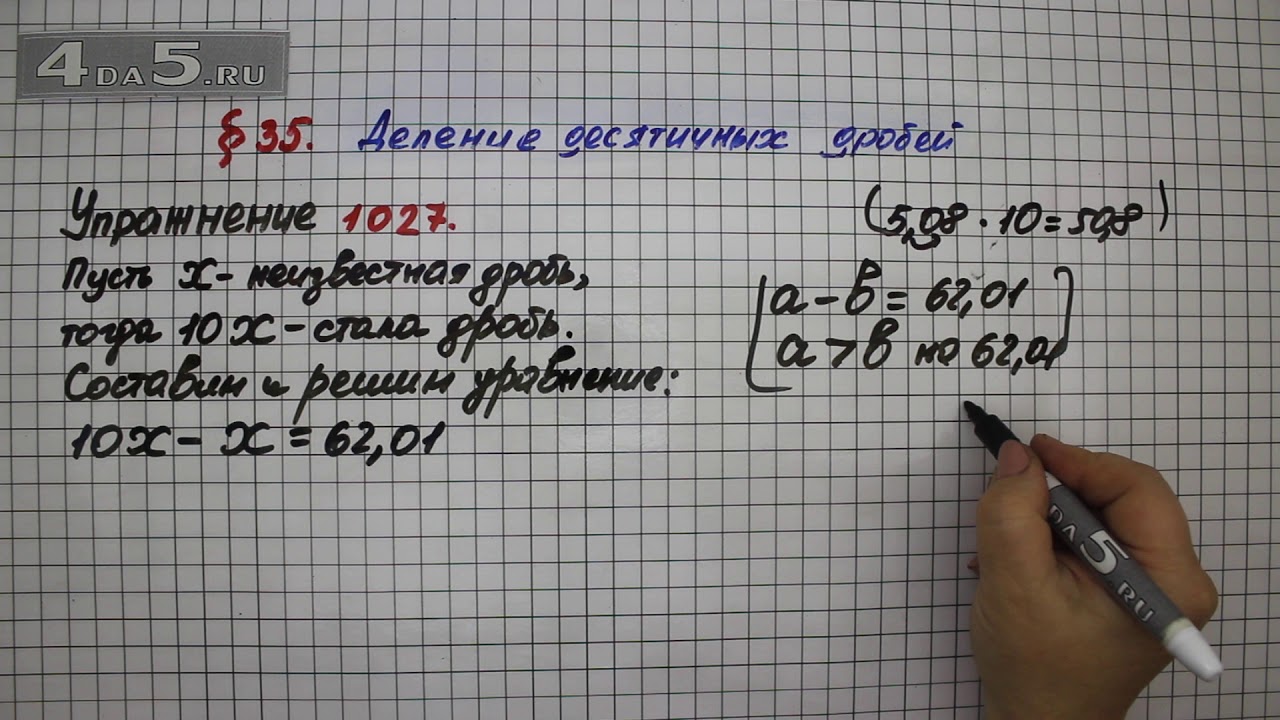 4DA5.RU
§ 35. Деление десятичных дробей
Упражнение 1027.
Пусть x - неизвестная дробь,
тогда 10x - стала дробь.
Составим и решим уравнение:
10x - x = 62,01
(5,08 · 10 = 50,8)
a - b = 62,01
a > b на 62,01
DA5.RU